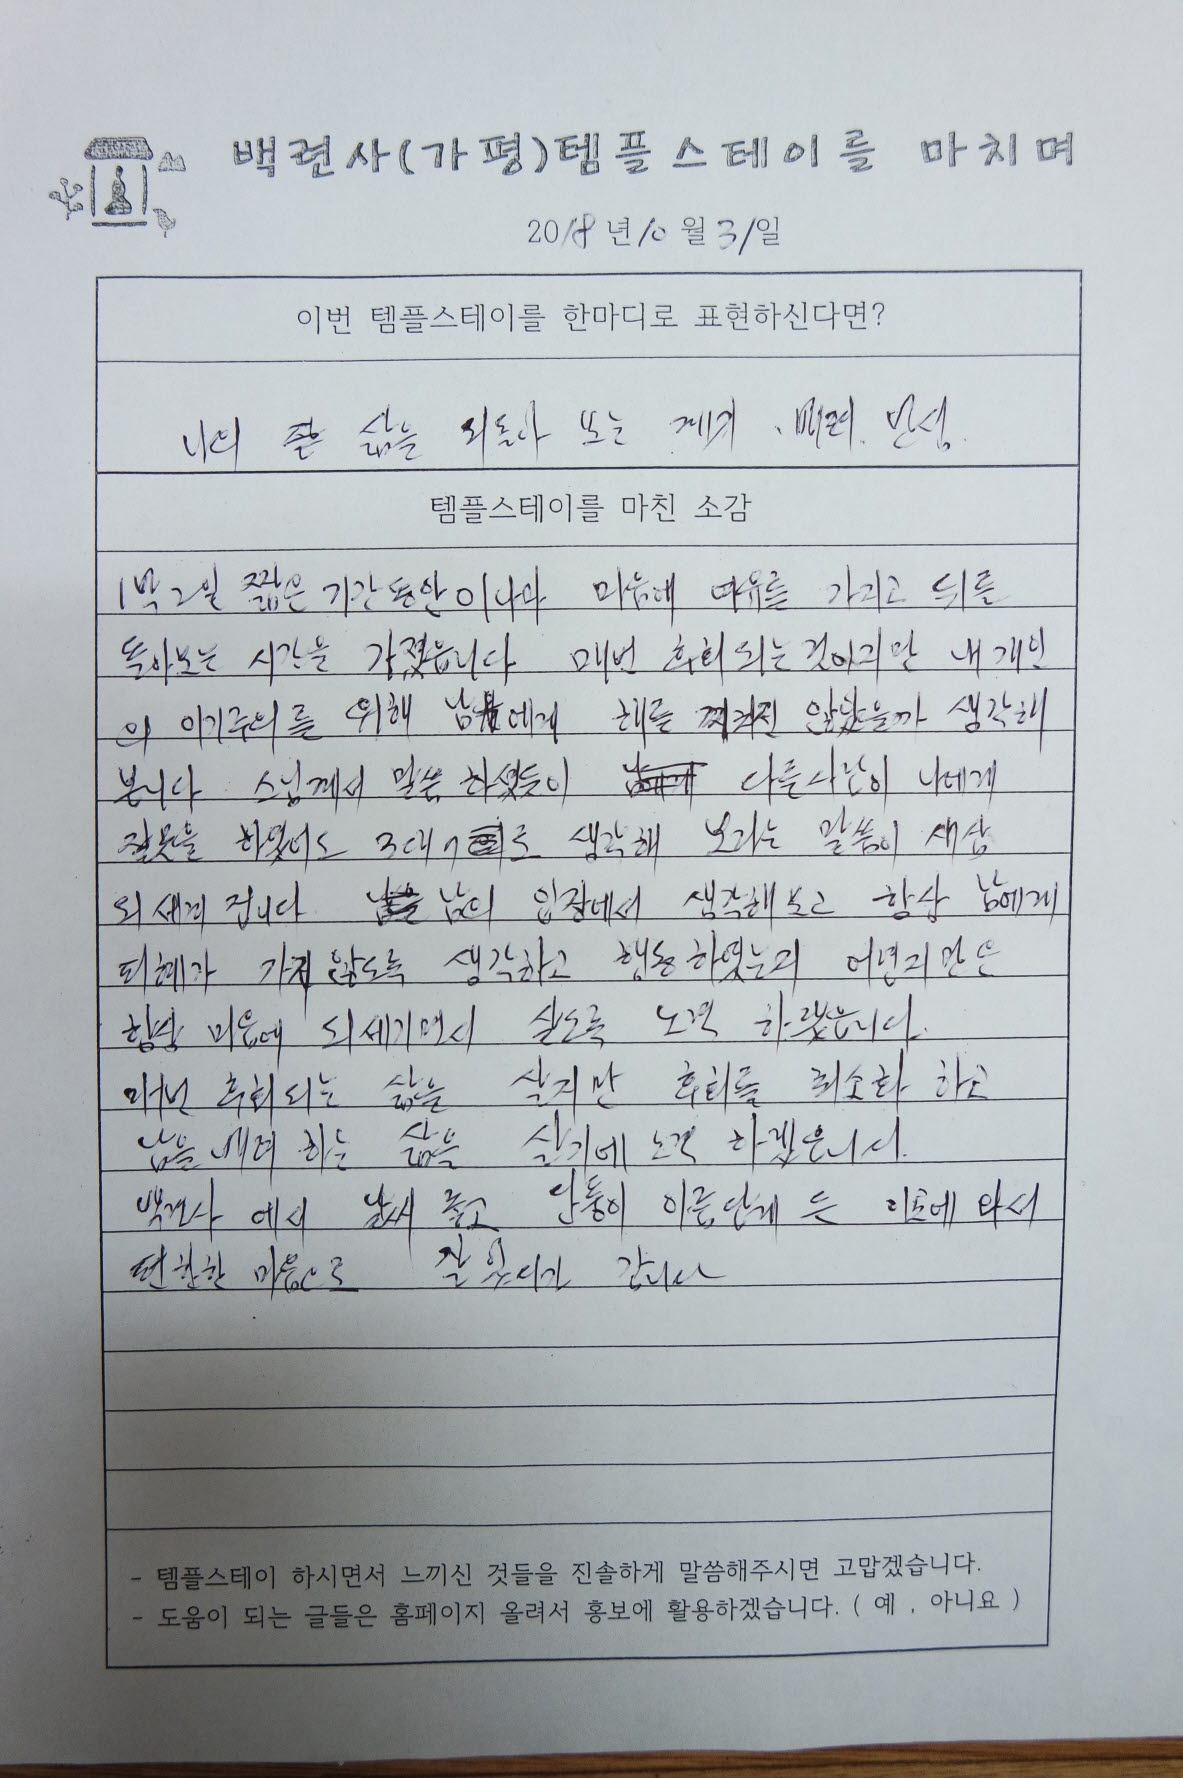 백련사(가평)템플스테이를 마치며
2018년 10월 31일
이번 템플스테이를 한마디로 표현하신다면?
나의 삶을 되돌아 보는 계기, 배려, 반성
템플스테이를 마친 소감
1박 2일 짧은 기간 동안이나마 마음에 여유를 가지고 뒤를
돌아보는 시간을 가졌습니다 매번 후회되는 것이지만 내 개인
의 이기주의를 위해 남에게 해를 않았을까 생각해
봅니다 스님께서 말씀 하셨듯이 다른사람이 나에게
잘못을 하였어도 생각해 보라는 말씀이 새삼
되세겨 집니다 남의 입장에서 생각해보고 항상 남에게
피해가 가지 않도록 생각하고 행동하였는지
항상 마음에 되세기면서 살도록 노력 하겠습니다.
매번 후회되는 삶을 살지만 후회를 최소화 하고
남을 배려 하는 삶을 살기에 노력 하겠습니다.
백련사 에서 날씨 좋고 단풍이 아름답게 든 와서
편한한 마음으로 잘 갑니다
- 템플스테이 하시면서 느끼신 것들을 진솔하게 말씀해주시면 고맙겠습니다.
- 도움이 되는 글들은 홈페이지 올려서 홍보에 활용하겠습니다. ( 예 , 아니요 )